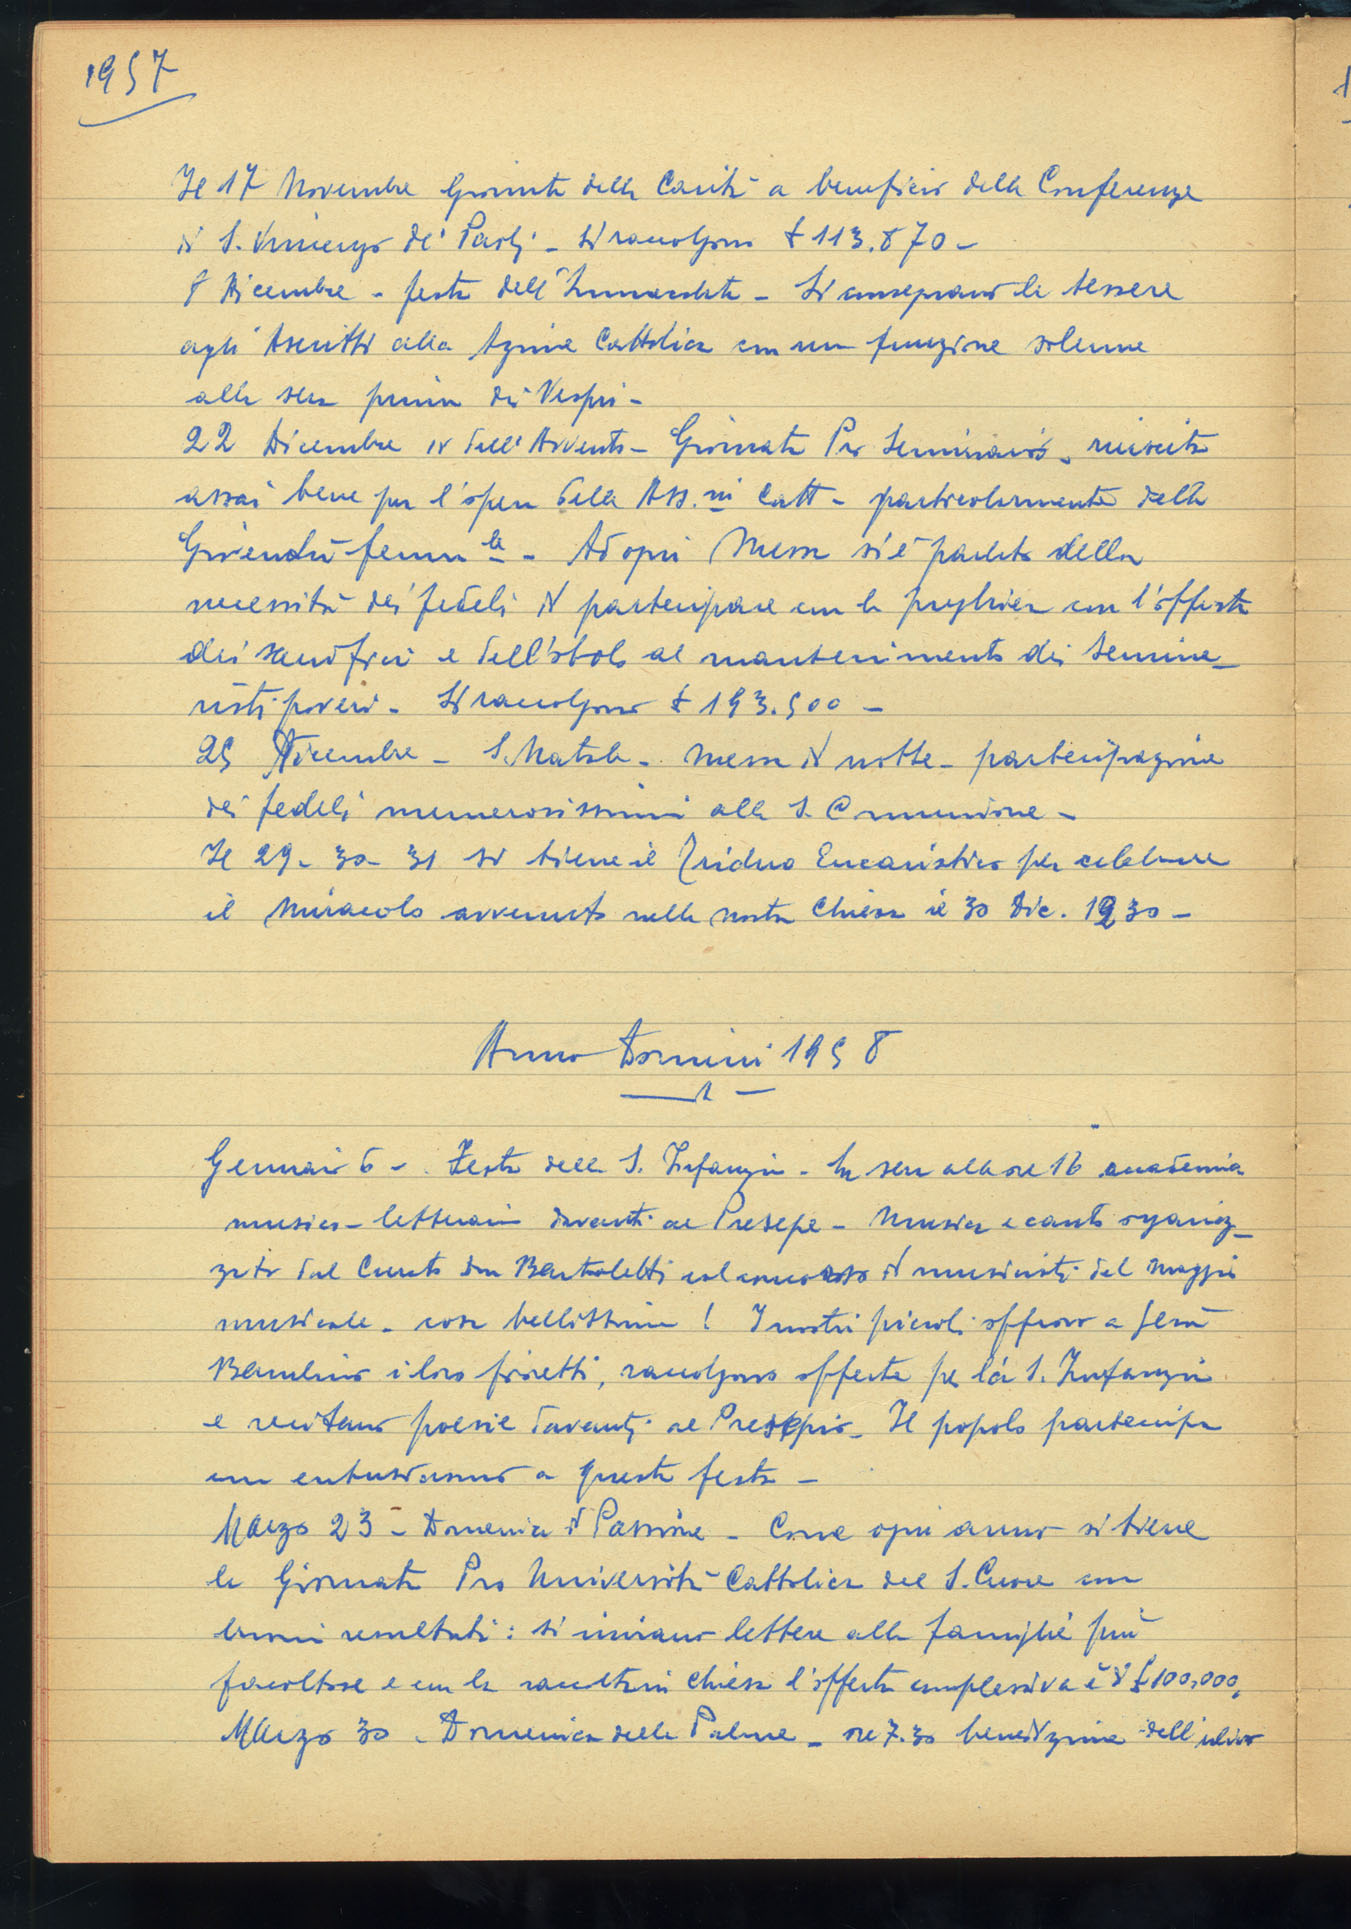 1957
Il 17 Novembre Giornata della Carità a beneficio della Conferenza
di S. Vincenzo de' Paoli - Si raccolgono £ 113.870 -
8 Dicembre - festa dell'Immacolata - Si consegnano le tessere
agli Ascritti alla Azione Cattolica con una funzione solenne
alla sera prima dei Vespri -
22 Dicembre IV dell'Avvento - Giornata Pro Seminario - riuscita
assai bene per l'opera delle Ass.ni Catt - particolarmente della
Gioventù femm.le - Ad ogni Messa si è parlato della
necessità dei fedeli di partecipare con la preghiera con l'offerta
dei sacrifici e dell'obolo al mantenimento dei Semina-
risti poveri - Si raccolgono £ 193.500 -
25 Dicembre - S. Natale - Messa di notte - partecipazione
dei fedeli numerosissimi alla S. Comunione -
Il 29 - 30 - 31 si tiene il Triduo Eucaristico per celebrare
il Miracolo avvenuto nella nostra Chiesa il 30 Dic. 1230 -
Anno Domini 1958
Gennaio 6 - Festa della S. Infanzia - La sera alle ore 16 accademia
musico-letteraria davanti al Presepe - Musica e canto organiz-
zato dal Curato don Bartoletti col concorso di musicisti del Maggio
musicale - cosa bellissima ! I nostri piccoli offrono a Gesù
Bambino i loro fioretti, raccolgono offerte per la S. Infanzia
e recitano poesie davanti al Presepio - Il popolo partecipa
con entusiasmo a questa festa -
Marzo 23 - Domenica di Passione - Come ogni anno si tiene
la Giornata Pro Università Cattolica del S. Cuore con
buoni resultati : si inviano lettere alle famiglie più
facoltose e con la raccolta in Chiesa l'offerta complessiva è di £ 100.000,
Marzo 30 - Domenica delle Palme - ore 7.30 benedizione dell'ulivo